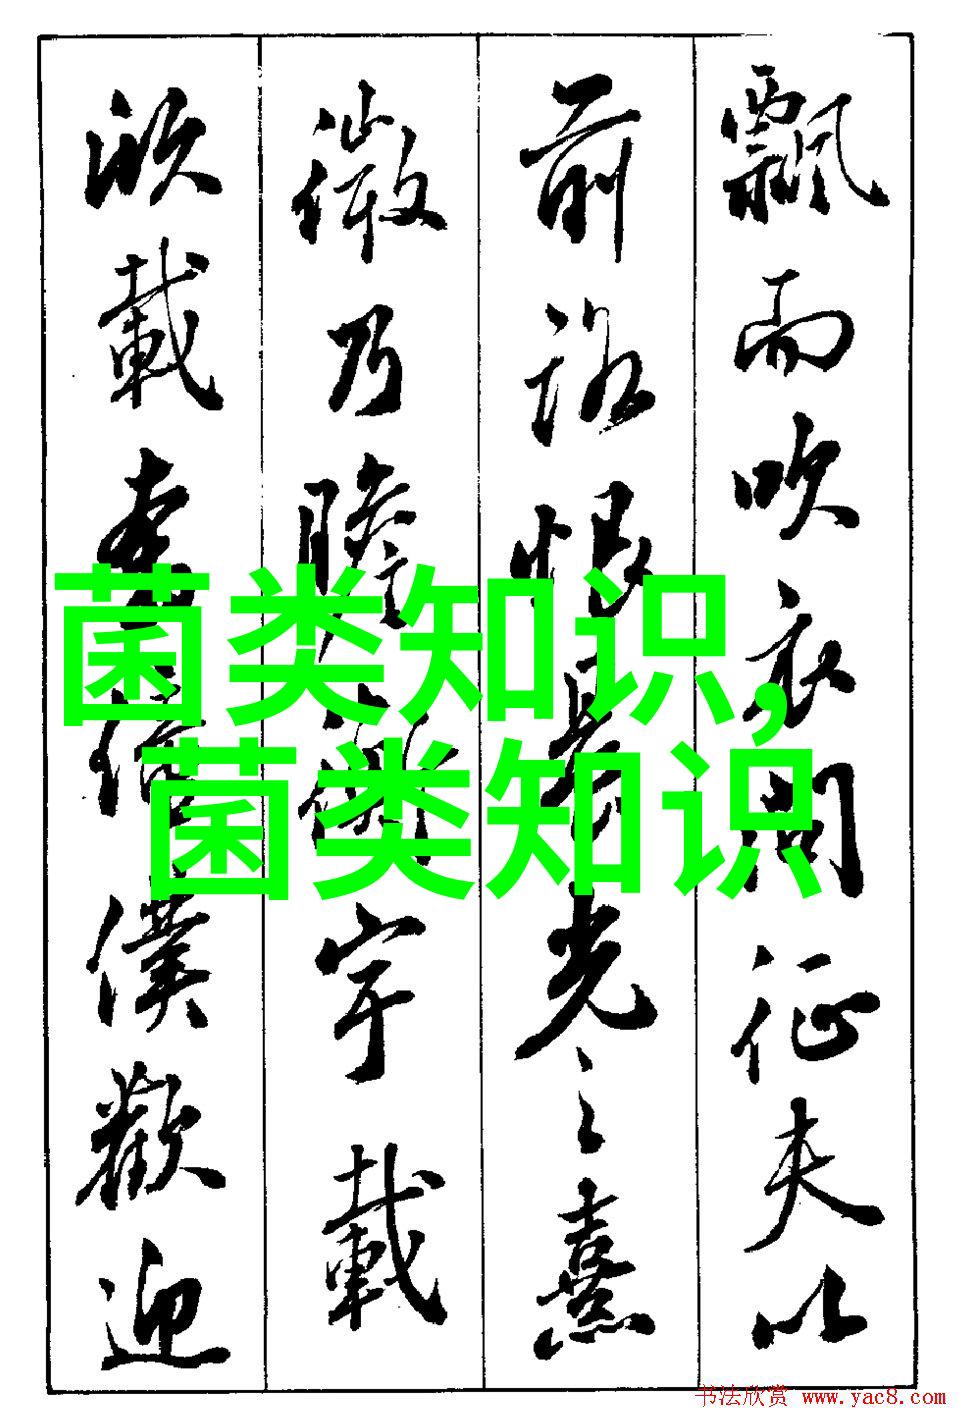 飄而吹衣問征夫以
前路恨晨光之熹
微乃瞻衡宇載
欣載奔僮僕歡迎
菌类知识,
菌类知识
书法欣赏 www.yac8.com